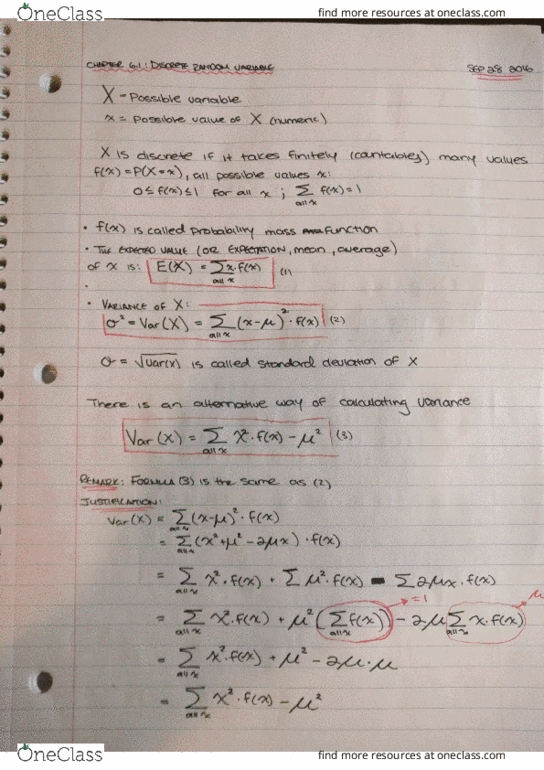 OneClass
find more resources at oneclass.com
CHAPTER 6.1: DISCRETE RANDOM VARIABLE
SEP 28 2016
X = Possible variable
x = Possible value of X (numeric)
X is discrete if it takes finitely (countables) many values
f(x) = P(X=x), all possible values x:
0 ≤ f(x) ≤ 1 for all x ; ∑ f(x) = 1
all x
• f(x) is called probability mass function
• THE EXPECTED VALUE (OR EXPECTATION, mean, average)
of x is: E(X) = ∑ x·f(x) (1)
all x
• VARIANCE OF X:
σ² = Var(X) = ∑ (x-μ)² · f(x) (2)
all x
σ = √Var(x) is called standard deviation of X
There is an alternative way of calculating variance
Var(X) = ∑ x²·f(x) - μ² (3)
all x
REMARK: FORMULA (3) is the same as (2)
JUSTIFICATION:
Var(X) = ∑ (x-μ)² · f(x)
all x
= ∑ (x²+μ²-2μx) · f(x)
all x
= ∑ x²·f(x) + ∑ μ²·f(x) - ∑ 2μx·f(x)
all x
= ∑ x²·f(x) + μ² (∑ f(x)) - 2μ ∑ x·f(x)
all x all x all x
=1
μ
= ∑ x²·f(x) + μ² - 2μ·μ
all x
= ∑ x²·f(x) - μ²
all x
OneClass
find more resources at oneclass.com